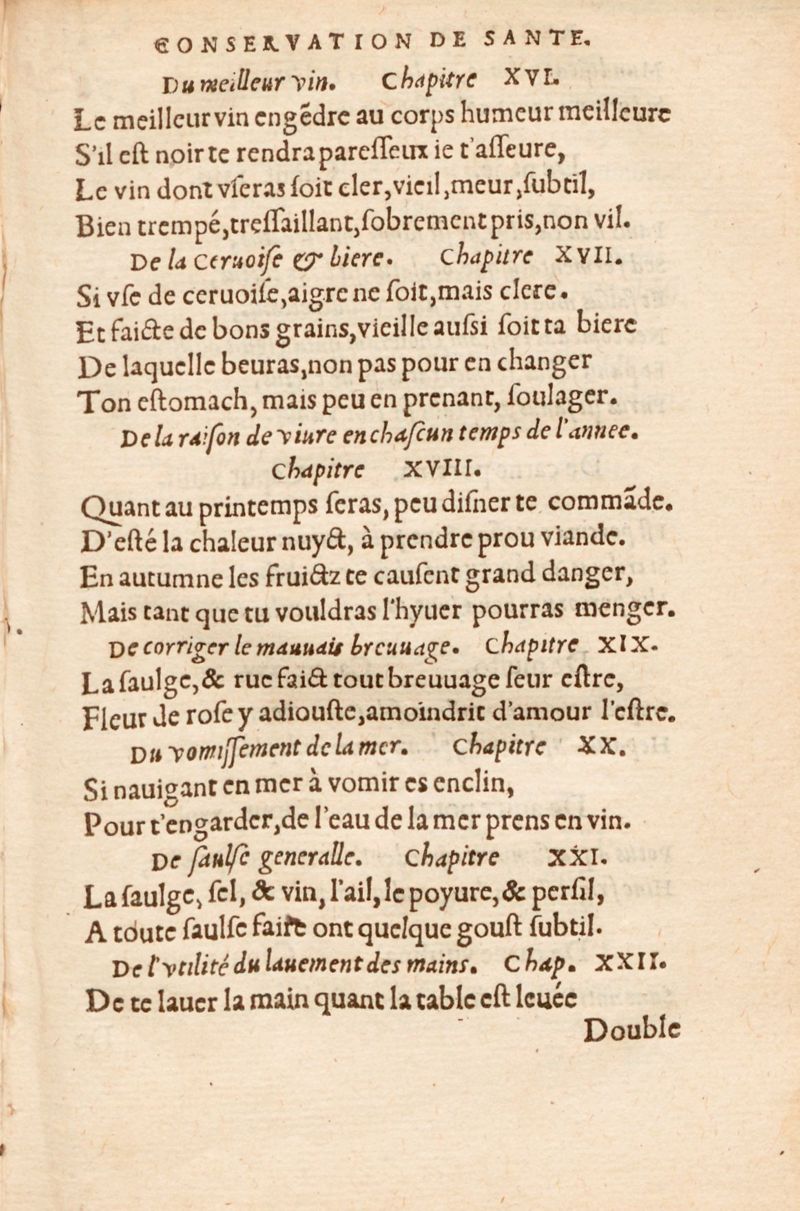 CONSERVATION DE SANTE.
Du meilleur vin. Chapitre XVI.
Le meilleur vin engẽdre au corps humeur meilleure
S'il eſt noir te rendra pareſſeux ie t'aſſeure,
Le vin dont vſeras ſoit cler, vieil, meur, ſubtil,
Bien trempé, treſſaillant, ſobrement pris, non vil.
De la Ceruoiſe & biere. Chapitre XVII.
Si vſe de ceruoiſe, aigre ne ſoit, mais clere.
Et faicte de bons grains, vieille auſsi ſoit ta biere
De laquelle beuras, non pas pour en changer
Ton eſtomach, mais peu en prenant, ſoulager.
De la raiſon de viure en chaſcun temps de l'annee.
Chapitre XVIII.
Quant au printemps ſeras, peu diſner te commãde.
D'eſté la chaleur nuyct, à prendre prou viande.
En autumne les fruictz te cauſent grand danger,
Mais tant que tu vouldras l'hyuer pourras menger.
De corriger le mauuais breuuage. Chapitre XIX.
La ſaulge, & rue faict tout breuuage ſeur eſtre,
Fleur de roſe y adiouſte, amoindrit d'amour l'eſtre.
Du vomiſſement de la mer. Chapitre XX.
Si nauigant en mer à vomir es enclin,
Pour t'engarder, de l'eau de la mer prens en vin.
De ſaulſe generalle. Chapitre XXI.
La ſaulge, ſel, & vin, l'ail, le poyure, & perſil,
A toute ſaulſe faire ont quelque gouſt ſubtil.
De l'vtilité du lauement des mains. Chap. XXII.
De te lauer la main quant la table eſt leuée
Double